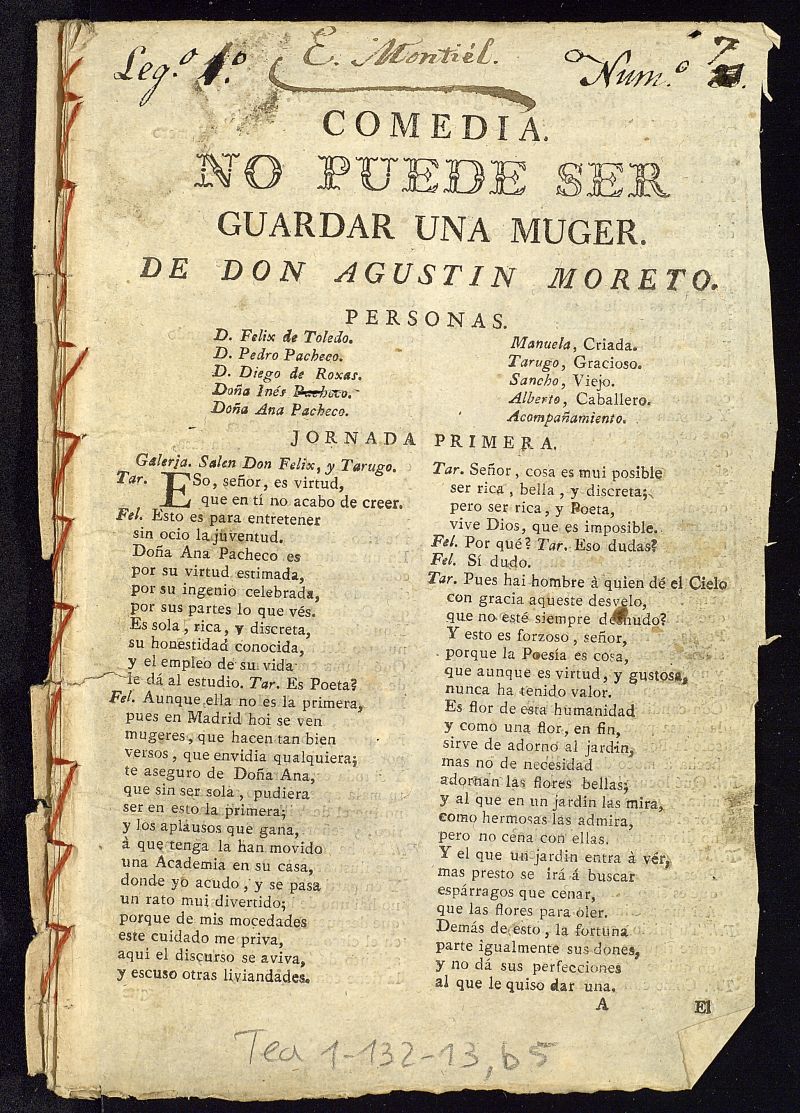 Leg.º 1.º
E. Montiél.
Num.º 7
21.
COMEDIA.
NO PUEDE SER
GUARDAR UNA MUGER.
DE DON AGUSTIN MORETO.
PERSONAS.
D. Felix de Toledo.
D. Pedro Pacheco.
D. Diego de Roxas.
Doña Inés Pacheco.
Doña Ana Pacheco.
Manuela, Criada.
Tarugo, Gracioso.
Sancho, Viejo.
Alberto, Caballero.
Acompañamiento.
JORNADA PRIMERA.
Galeria. Salen Don Felix, y Tarugo.
Tar. ESo, señor, es virtud,
que en tí no acabo de creer.
Fel. Esto es para entretener
sin ocio la juventud.
Doña Ana Pacheco es
por su virtud estimada,
por su ingenio celebrada,
por sus partes lo que vés.
Es sola, rica, y discreta,
su honestidad conocida,
y el empleo de su vida
le dá al estudio. Tar. Es Poeta?
Fel. Aunque ella no es la primera,
pues en Madrid hoi se ven
mugeres, que hacen tan bien
versos, que envidia qualquiera;
te aseguro de Doña Ana,
que sin ser sola, pudiera
ser en esto la primera;
y los aplausos que gana,
à que tenga la han movido
una Academia en su casa,
donde yo acudo, y se pasa
un rato mui divertido;
porque de mis mocedades
este cuidado me priva,
aquí el discurso se aviva,
y escuso otras liviandades.
Tar. Señor, cosa es mui posible
ser rica, bella, y discreta;
pero ser rica, y Poeta,
vive Dios, que es imposible.
Fel. Por qué? Tar. Eso dudas?
Fel. Sí dudo.
Tar. Pues hai hombre à quien dé el Cielo
con gracia aqueste desvelo,
que no esté siempre desnudo?
Y esto es forzoso, señor,
porque la Poesía es cosa,
que aunque es virtud, y gustosa,
nunca ha tenido valor.
Es flor de esta humanidad
y como una flor, en fin,
sirve de adorno al jardin,
mas no de necesidad
adornan las flores bellas;
y al que en un jardín las mira,
como hermosas las admira,
pero no cena con ellas.
Y el que un jardin entra à vér,
mas presto se irá á buscar
espárragos que cenar,
que las flores para oler.
Demás de esto, la fortuna
parte igualmente sus dones,
y no dá sus perfecciones
al que le quiso dar una.
A
El
Tea 1-132-13, b5